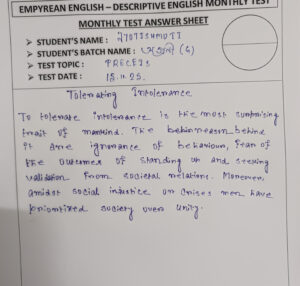 EMPYREAN ENGLISH – DESCRIPTIVE ENGLISH MONTHLY TEST
MONTHLY TEST ANSWER SHEET
➤ STUDENT'S NAME :
➤ STUDENT'S BATCH NAME : (4)
➤ TEST TOPIC : PRECIS
➤ TEST DATE : 15.11.25
Tolerating Intolerance
To tolerate intolerance is the most surprising
trait of mankind. The behind reason behind
it are ignorance of behaviour, fear of
the outcomes of standing up and seeking
validation from societal relations. Moreover,
amidst social injustice or crises men have
prioritized society over unity.